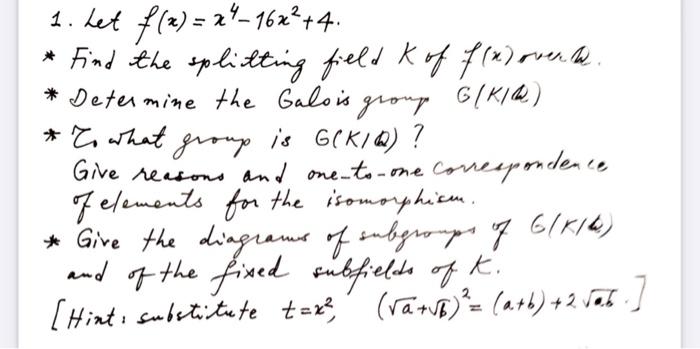 1. Let f(x) = x⁴ - 16x² + 4.
* Find the splitting field K of f(x) over Q.
* Determine the Galois group G(K/Q)
* To what group is G(K/Q) ?
Give reasons and one-to-one correspondence
of elements for the isomorphism.
* Give the diagrams of subgroups of G(K/Q)
and of the fixed subfields of K.
[Hint: substitute t=x², (√a+√b)² = (a+b) + 2√ab.]